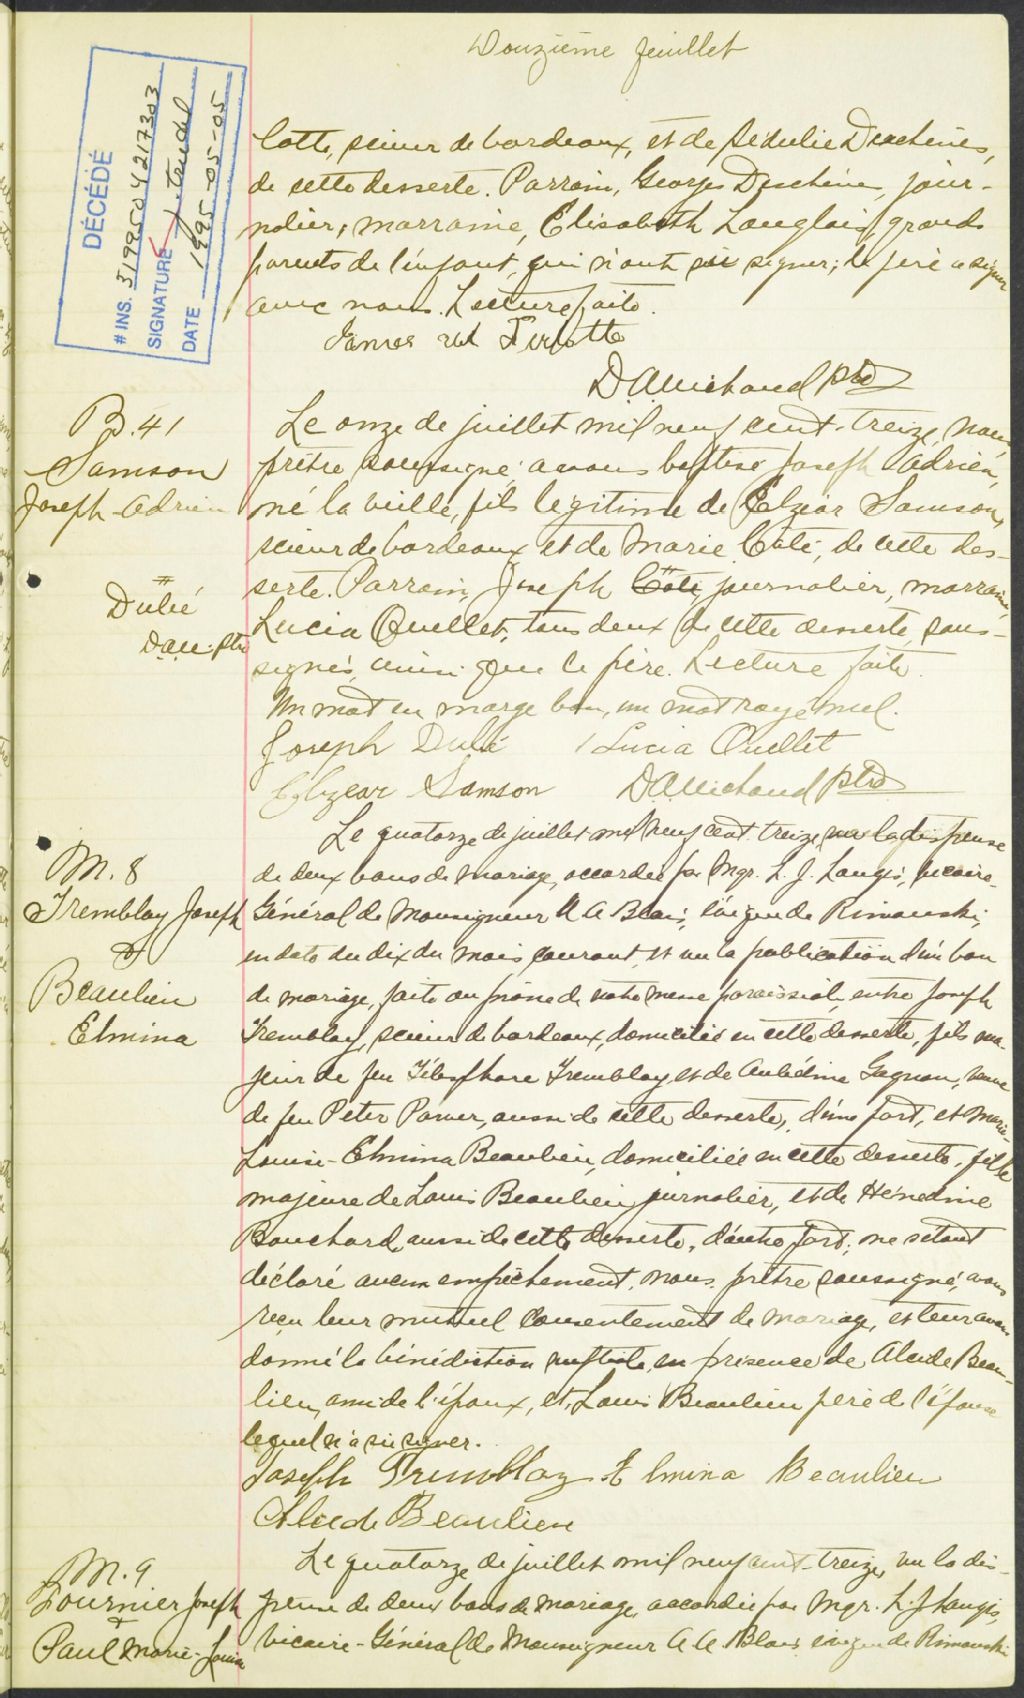 Douzième feuillet
DÉCÉDÉ
# INS. 3199504217303
SIGNATURE
DATE 1995-05-05
lotte, scieur de bardeaux, et de Sédulie Deschènes,
de cette desserte. Parrain, Georges Deschènes, jour-
nalier, marraine, Elisabeth Langlais, grands
parents de l'enfant, qui n'ont su signer; le père a signé
avec nous. Lecture faite.
James
D Michaud Ptre
B. 41
Samson
Joseph-Adrien
Le onze de juillet mil neuf cent-treize, nous
prêtre soussigné, avons baptisé Joseph Adrien,
né la veille, fils légitime de Elzéar Samson,
scieur de bardeaux et de Marie Côté, de cette des-
serte. Parrain, Joseph Côté, journalier, marraine
Lucia Ouellet, tous deux de cette desserte, sous-
signés, ainsi que le père. Lecture faite.
Dubé
D.M. ptre
Un mot en marge bon, un mot rayé nul.
Joseph Dubé Lucia Ouellet
Elzear Samson D Michaud Ptre
M. 8
Tremblay Joseph
&
Beaulieu
Elmina
Le quatorze de juillet mil neuf cent-treize, vu la dispense
de deux bans de mariage, accordée par Mgr. L. J. Langis, vicaire-
Général de Monseigneur A A Blais, évêque de Rimouski,
en date du dix du mois courant, et vu la publication d'un ban
de mariage, faite au prône de notre messe paroissiale, entre Joseph
Tremblay, scieur de bardeaux, domicilié en cette desserte, fils ma-
jeur de feu Télesphore Tremblay et de Gagnon, veuve
de feu Peter Power, aussi de cette desserte, d'une part, et Marie-
Louise-Elmina Beaulieu, domiciliée en cette desserte, fille
majeure de Louis Beaulieu, journalier, et de Hénédine
Bouchard, aussi de cette desserte, d'autre part; ne s'étant
déclaré aucun empêchement, nous, prêtre soussigné, avons
reçu leur mutuel consentement de mariage, et leur avons
donné la bénédiction nuptiale, en présence de Alcide Beau-
lieu, ami de l'époux, et, Louis Beaulieu père de l'épouse
lequel n'a su signer.
Joseph Tremblay Elmina Beaulieu
Alcide Beaulieu
M. 9
Fournier Joseph
&
Paul Marie-Louise
Le quatorze de juillet mil neuf cent-treize, vu la dis-
pense de deux bans de mariage, accordée par Mgr. L. J Langis,
Vicaire-Général de Monseigneur A A Blais évêque de Rimouski